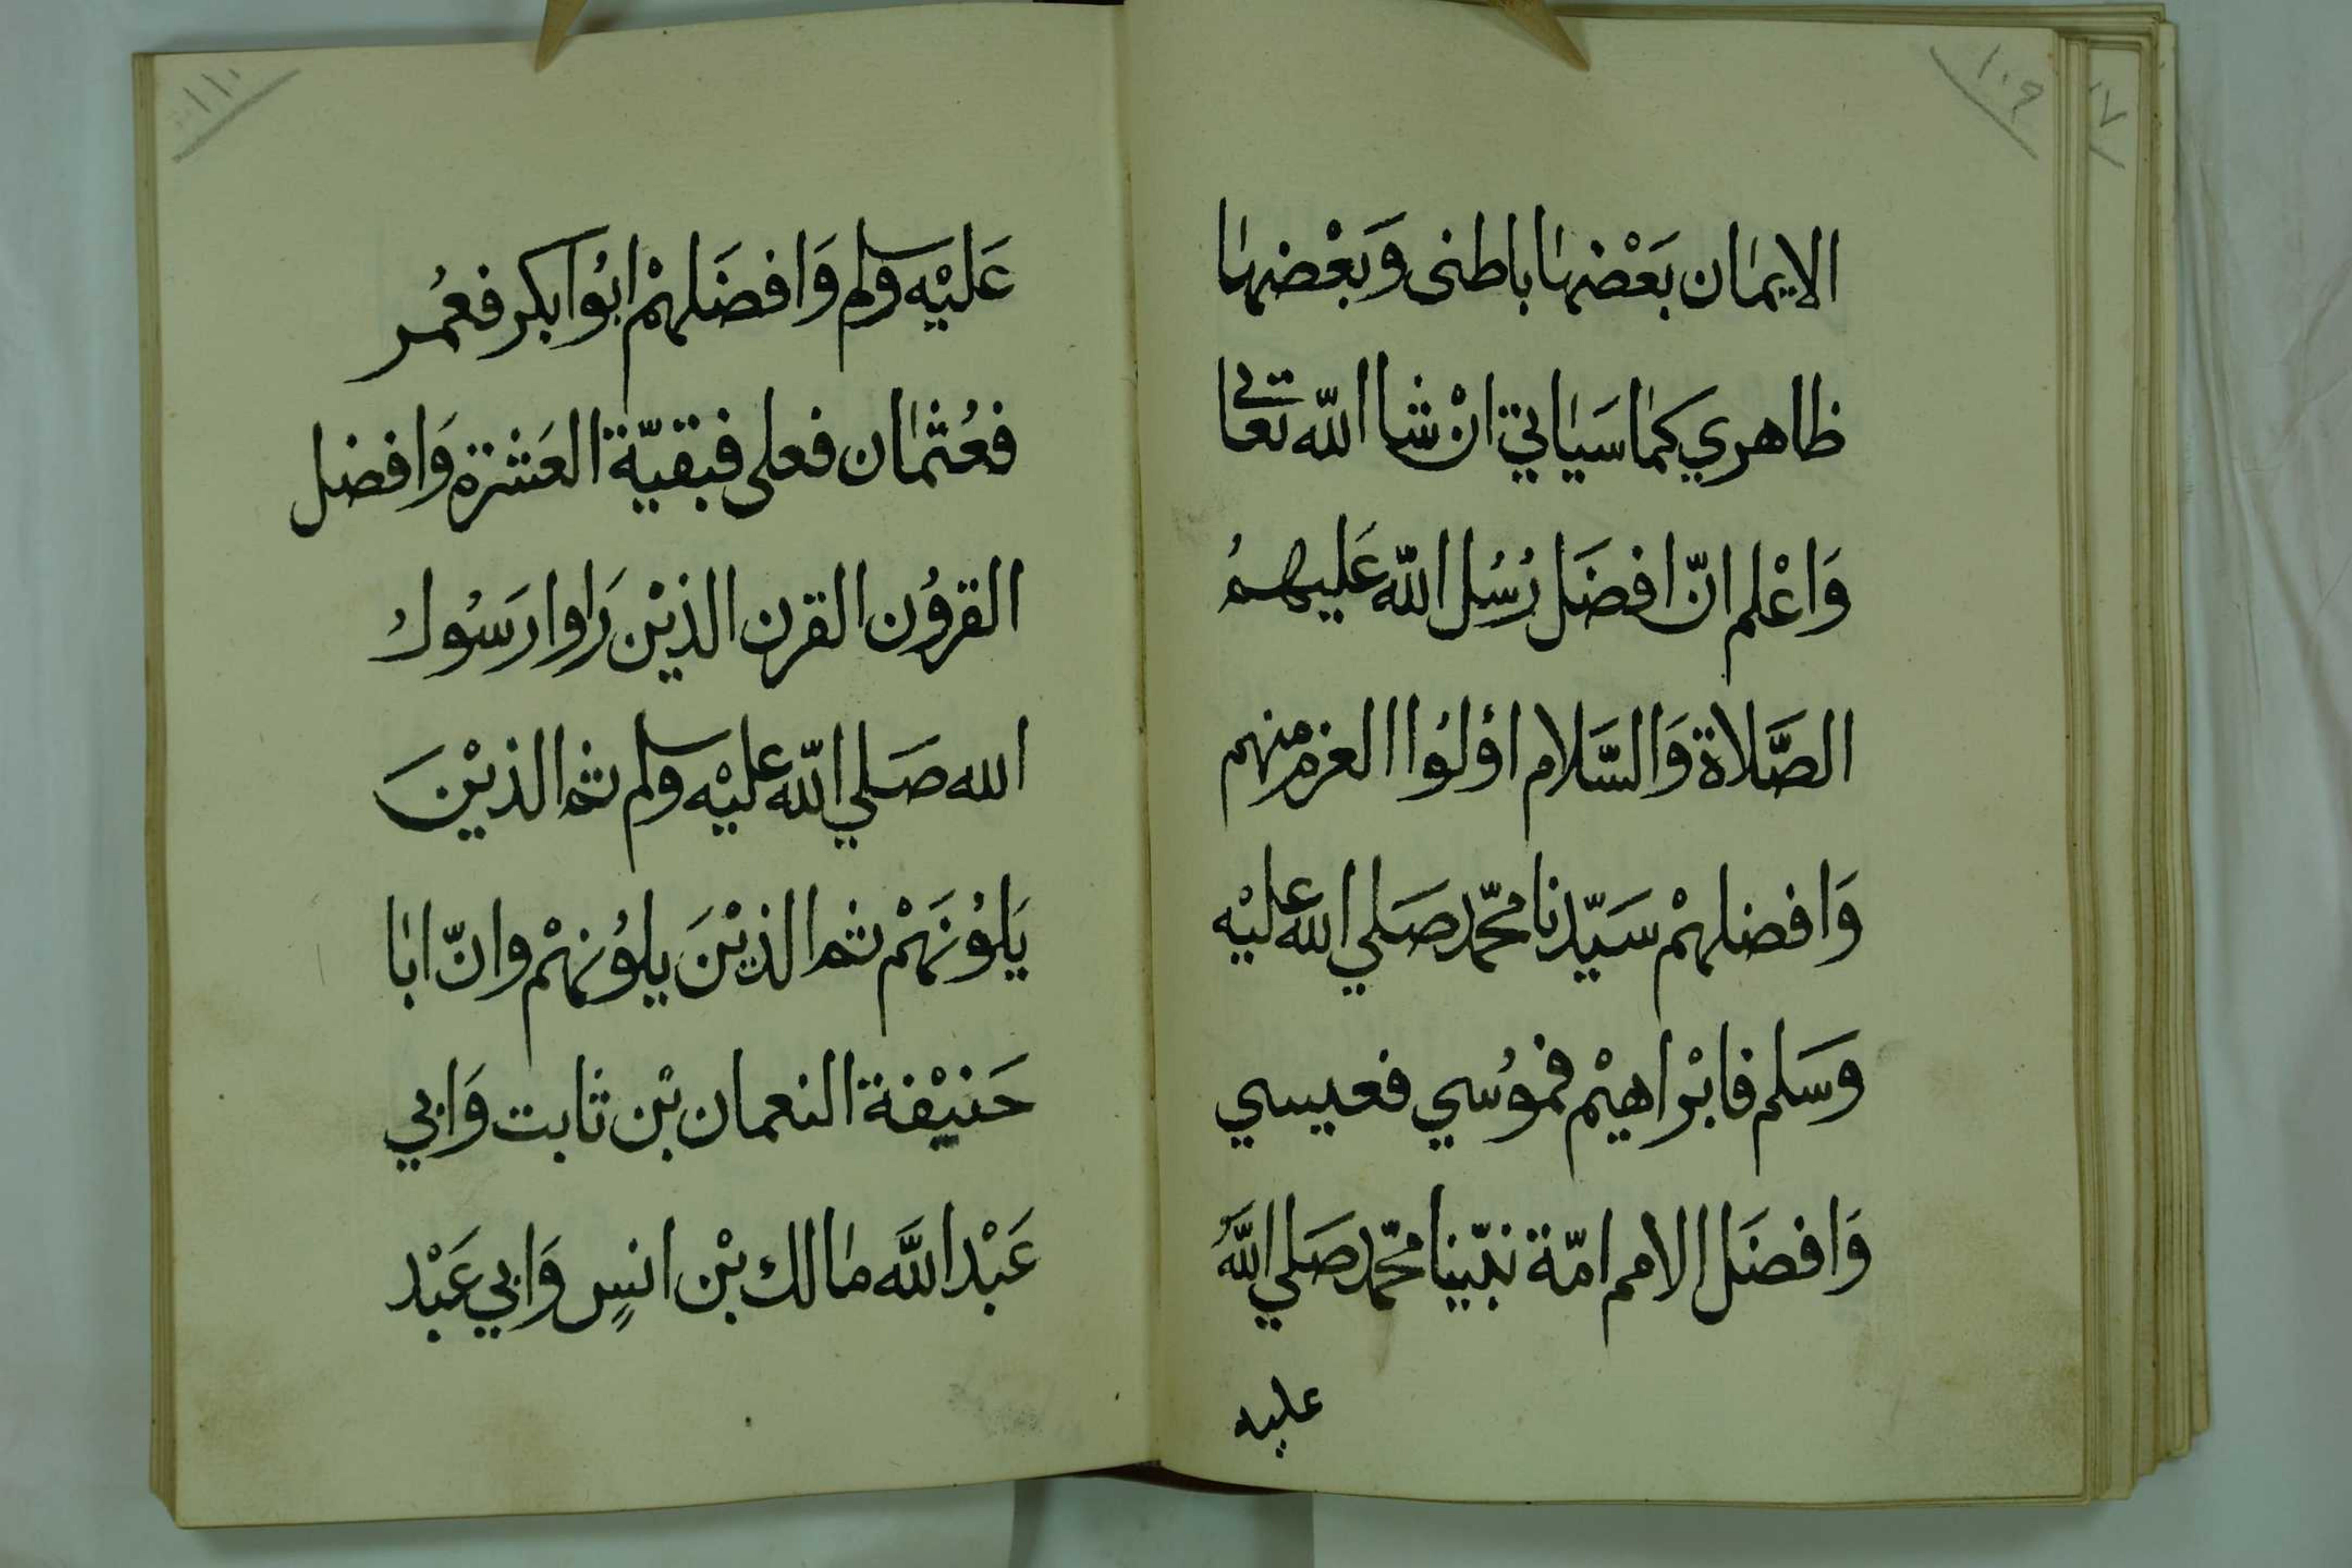 ١٠٩
٠٧
الايمان بَعْضهَا باطنى وَبَعْضهَا
ظاهري كمَا سَيَاتي انْ شا اللّه تعالى
وَاعْلم انّ افضَل رُسُل اللّه عَليهمُ
الصَّلاة وَالسَّلام اؤلوُا العزم منهم
وَافضلهمْ سَيّدنا محّمد صَلي اللّه عليْه
وَسَلم فابْراهيْم فموُسي فعيسي
وَافضَل الامم امّة نبّينا محّمد صَلي اللَّهُ
عليه
١١٠
عَليْه وسلم وَافضَلهمْ ابُوا بكر فعُمر
فعُثمَان فعلى فبقيّة العَشرة وَافضل
القروُن القرن الذيْن رَاوا رَسُول
الله صَلي اللّه عليْه وسلم ثم الذيْنَ
يَلوُنَهمْ ثم الذيْنَ يلوُنهمْ وانّ ابَا
حَنيْفة النعمان بْن ثابت وَابي
عَبْد اللَّه مَالك بْن انسٍ وَابي عَبْد